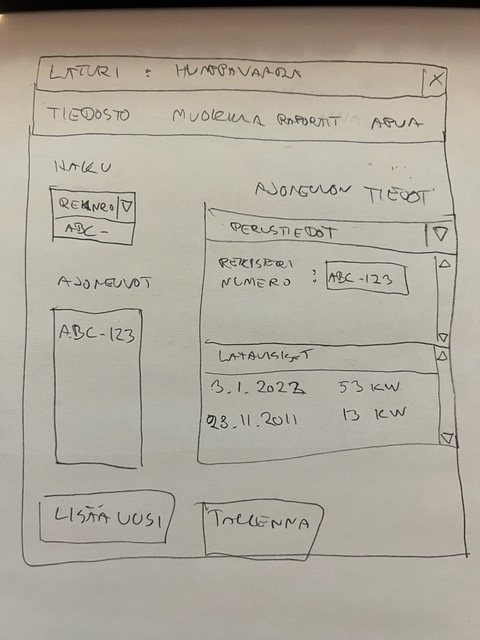 LATURI : HUMPAVAARA X
TIEDOSTO MUOKKAA RAPORTIT APUA
HAKU
REKNRO
ABC-
AJONEUVOT
ABC-123
AJONEUVON TIEDOT
PERUSTIEDOT
REKISTERI
NUMERO : ABC-123
LATAUKSET
3.1.2022 53 KW
23.11.2011 13 KW
LISÄÄ UUSI
TALLENNA